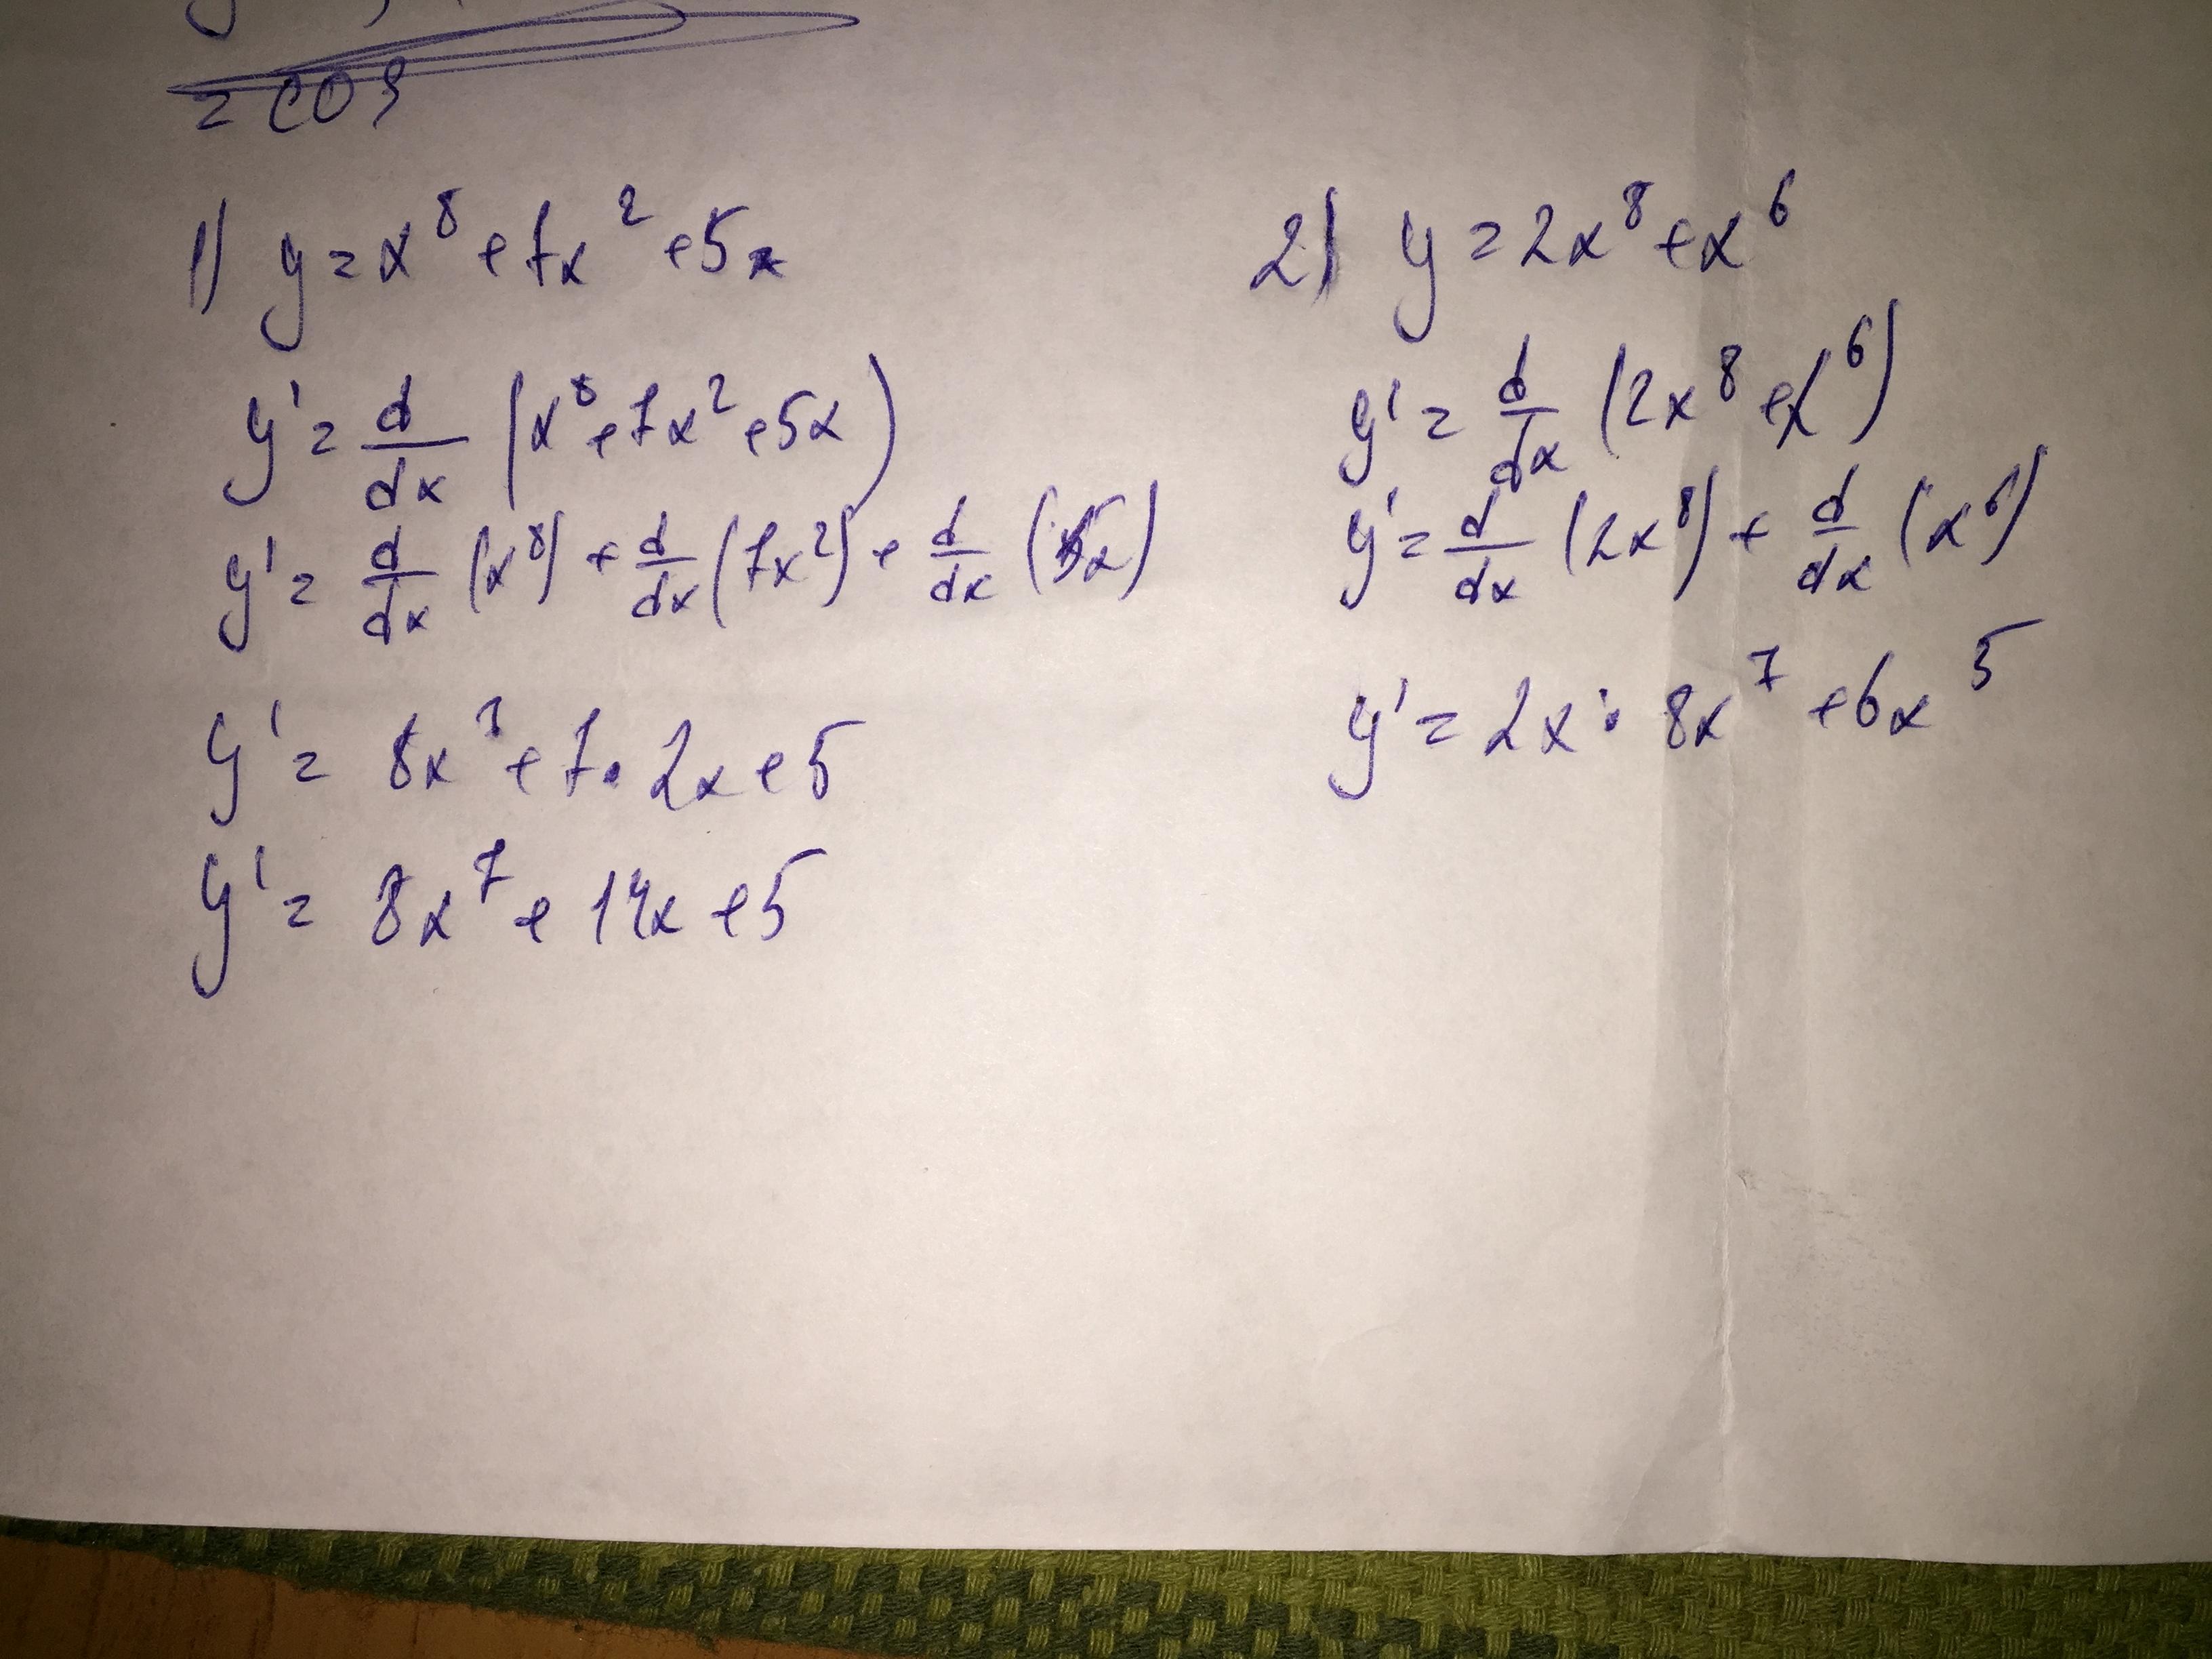 = cos
1) y = x⁸ + 7x² + 5x
y' = d/dx (x⁸ + 7x² + 5x)
y' = d/dx (x⁸) + d/dx (7x²) + d/dx (5x)
y' = 8x⁷ + 7 · 2x + 5
y' = 8x⁷ + 14x + 5
2) y = 2x⁸ + x⁶
y' = d/dx (2x⁸ + x⁶)
y' = d/dx (2x⁸) + d/dx (x⁶)
y' = 2x · 8x⁷ + 6x⁵